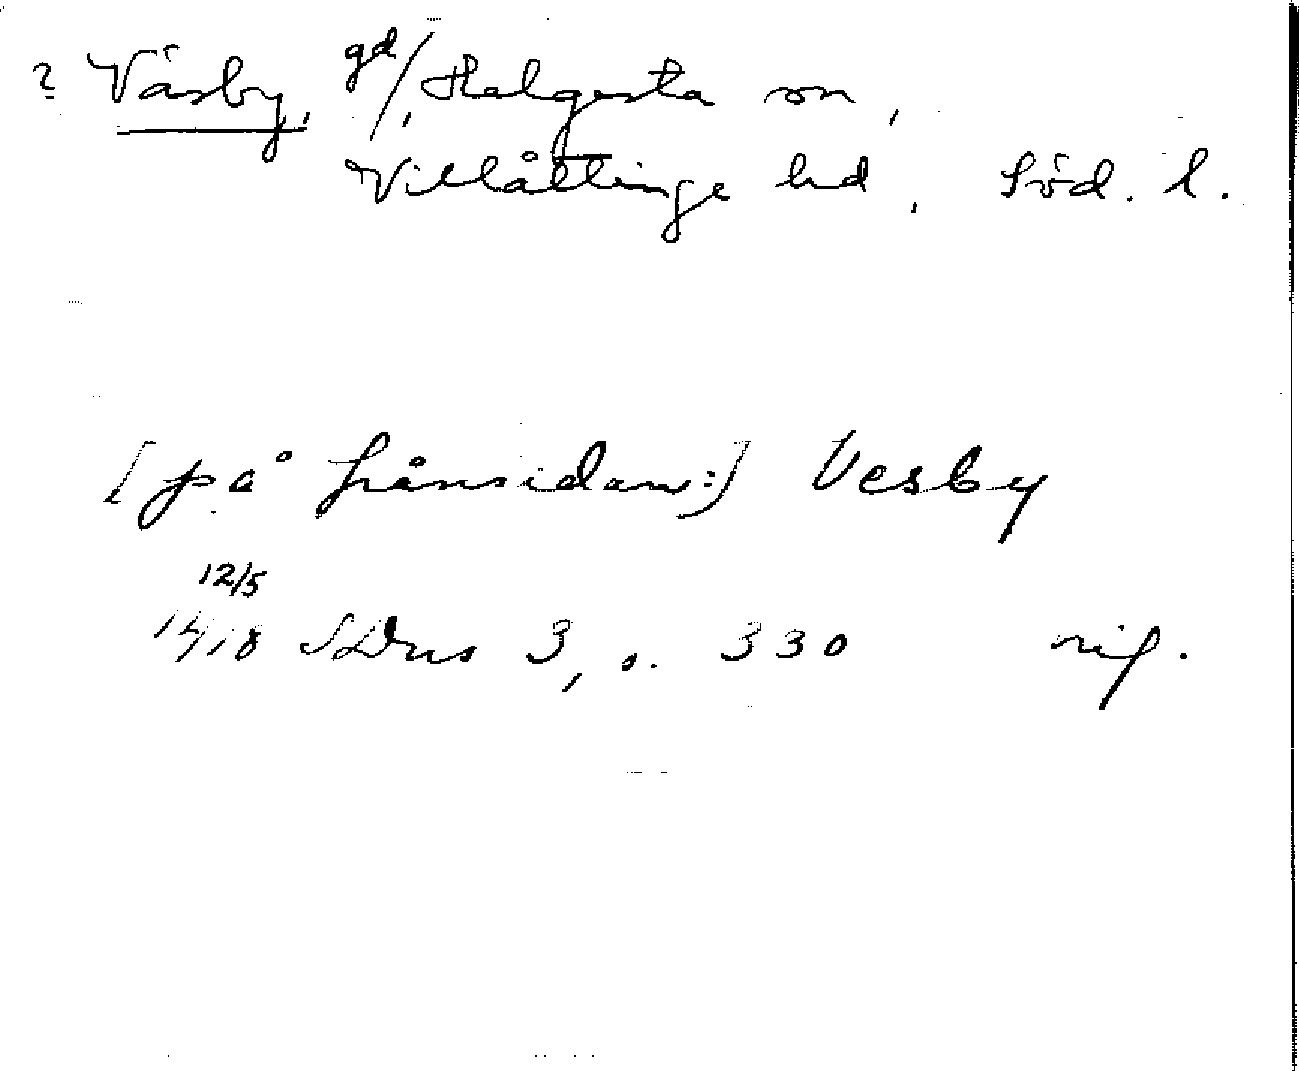 ? Väsby, gd/, Helgesta sn,
Villåttinge hd, Söd. l.
[på frånsidan:] Vesby
12/5
1418 SDns 3, s. 330 nif.